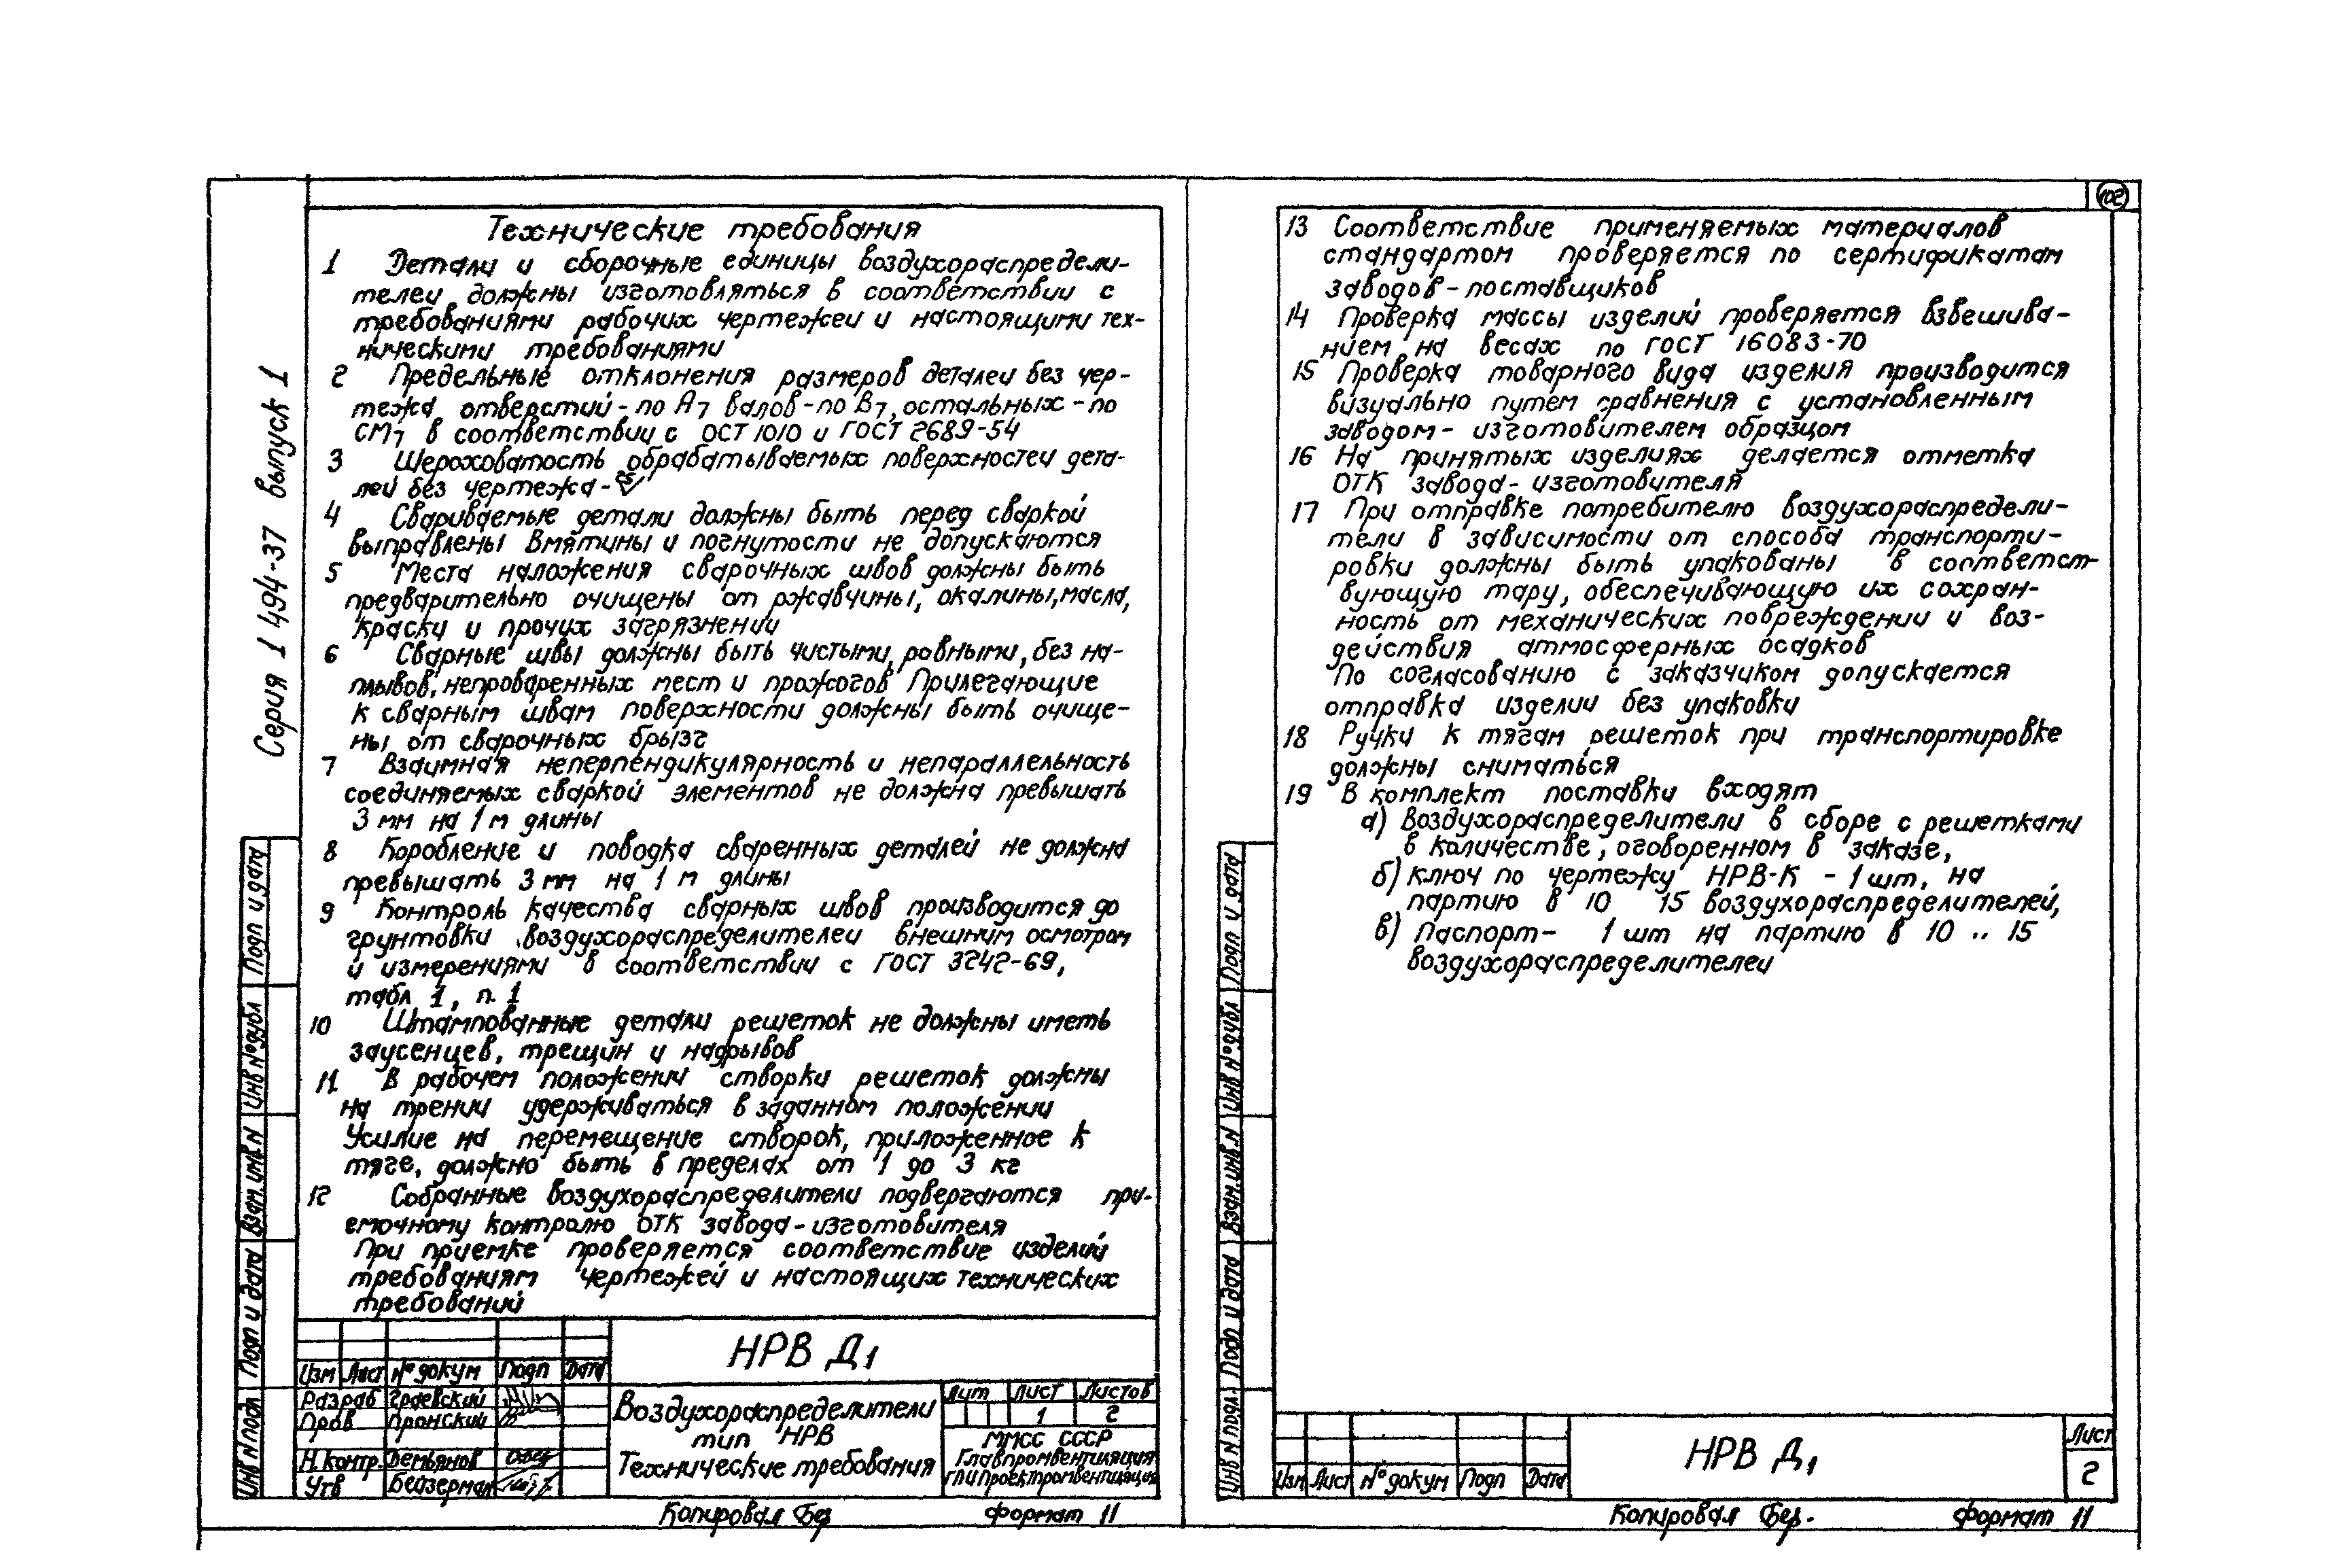 102
Серия 1 494-37 выпуск 1
Технические требования
1 Детали и сборочные единицы воздухораспредели-
телей должны изготовляться в соответствии с
требованиями рабочих чертежей и настоящими тех-
ническими требованиями
2 Предельные отклонения размеров деталей без чер-
тежа отверстий - по А7 валов - по В7, остальных - по
СМ7 в соответствии с ОСТ 1010 и ГОСТ 2689-54
3 Шероховатость обрабатываемых поверхностей дета-
лей без чертежа -
4 Свариваемые детали должны быть перед сваркой
выправлены Вмятины и погнутости не допускаются
5 Места наложения сварочных швов должны быть
предварительно очищены от ржавчины, окалины, масла,
краски и прочих загрязнений
6 Сварные швы должны быть чистыми, ровными, без на-
плывов, непроваренных мест и прожогов Прилегающие
к сварным швам поверхности должны быть очище-
ны от сварочных брызг
7 Взаимная неперпендикулярность и непараллельность
соединяемых сваркой элементов не должна превышать
3 мм на 1 м длины
8 Коробление и поводка сваренных деталей не должна
превышать 3 мм на 1 м длины
9 Контроль качества сварных швов производится до
грунтовки воздухораспределителей внешним осмотром
и измерениями в соответствии с ГОСТ 3242-69,
табл 1, п. 1
10 Штампованные детали решеток не должны иметь
заусенцев, трещин и надрывов
11 В рабочем положении створки решеток должны
на трении удерживаться в заданном положении
Усилие на перемещение створок, приложенное к
тяге, должно быть в пределах от 1 до 3 кг
12 Собранные воздухораспределители подвергаются при-
емочному контролю ОТК завода-изготовителя
При приемке проверяется соответствие изделий
требованиям чертежей и настоящих технических
требований
13 Соответствие применяемых материалов
стандартом проверяется по сертификатам
заводов-поставщиков
14 Проверка массы изделий проверяется взвешива-
нием на весах по ГОСТ 16083-70
15 Проверка товарного вида изделия производится
визуально путем сравнения с установленным
заводом - изготовителем образцом
16 На принятых изделиях делается отметка
ОТК завода-изготовителя
17 При отправке потребителю воздухораспредели-
тели в зависимости от способа транспорти-
ровки должны быть упакованы в соответст-
вующую тару, обеспечивающую их сохран-
ность от механических повреждений и воз-
действия атмосферных осадков
По согласованию с заказчиком допускается
отправка изделий без упаковки
18 Ручки к тягам решеток при транспортировке
должны сниматься
19 В комплект поставки входят
а) Воздухораспределители в сборе с решетками
в количестве, оговоренном в заказе,
б) ключ по чертежу НРВ-К - 1 шт. на
партию в 10 15 воздухораспределителей,
в) Паспорт - 1 шт на партию в 10 .. 15
воздухораспределителей
Подп и дата
Инв № дубл
Взам. инв. N
Подп и дата
Инв N подл
Изм Лист № докум Подп Дата
Разраб Граевский
Пров Пронский
Н. контр. Демьянов
Утв Бейзерман
НРВ Д1
Воздухораспределители
тип НРВ
Технические требования
Лит Лист Листов
1 2
ММСС СССР
Главпромвентиляция
ГПИ Проектпромвентиляция
Копировал Бер
Формат 11
Подп и дата
Инв № дубл
Взам. инв. N
Подп и дата
Инв N подл.
Изм Лист № докум Подп Дата
НРВ Д1
Лист
2
Копировал Бер.
Формат 11